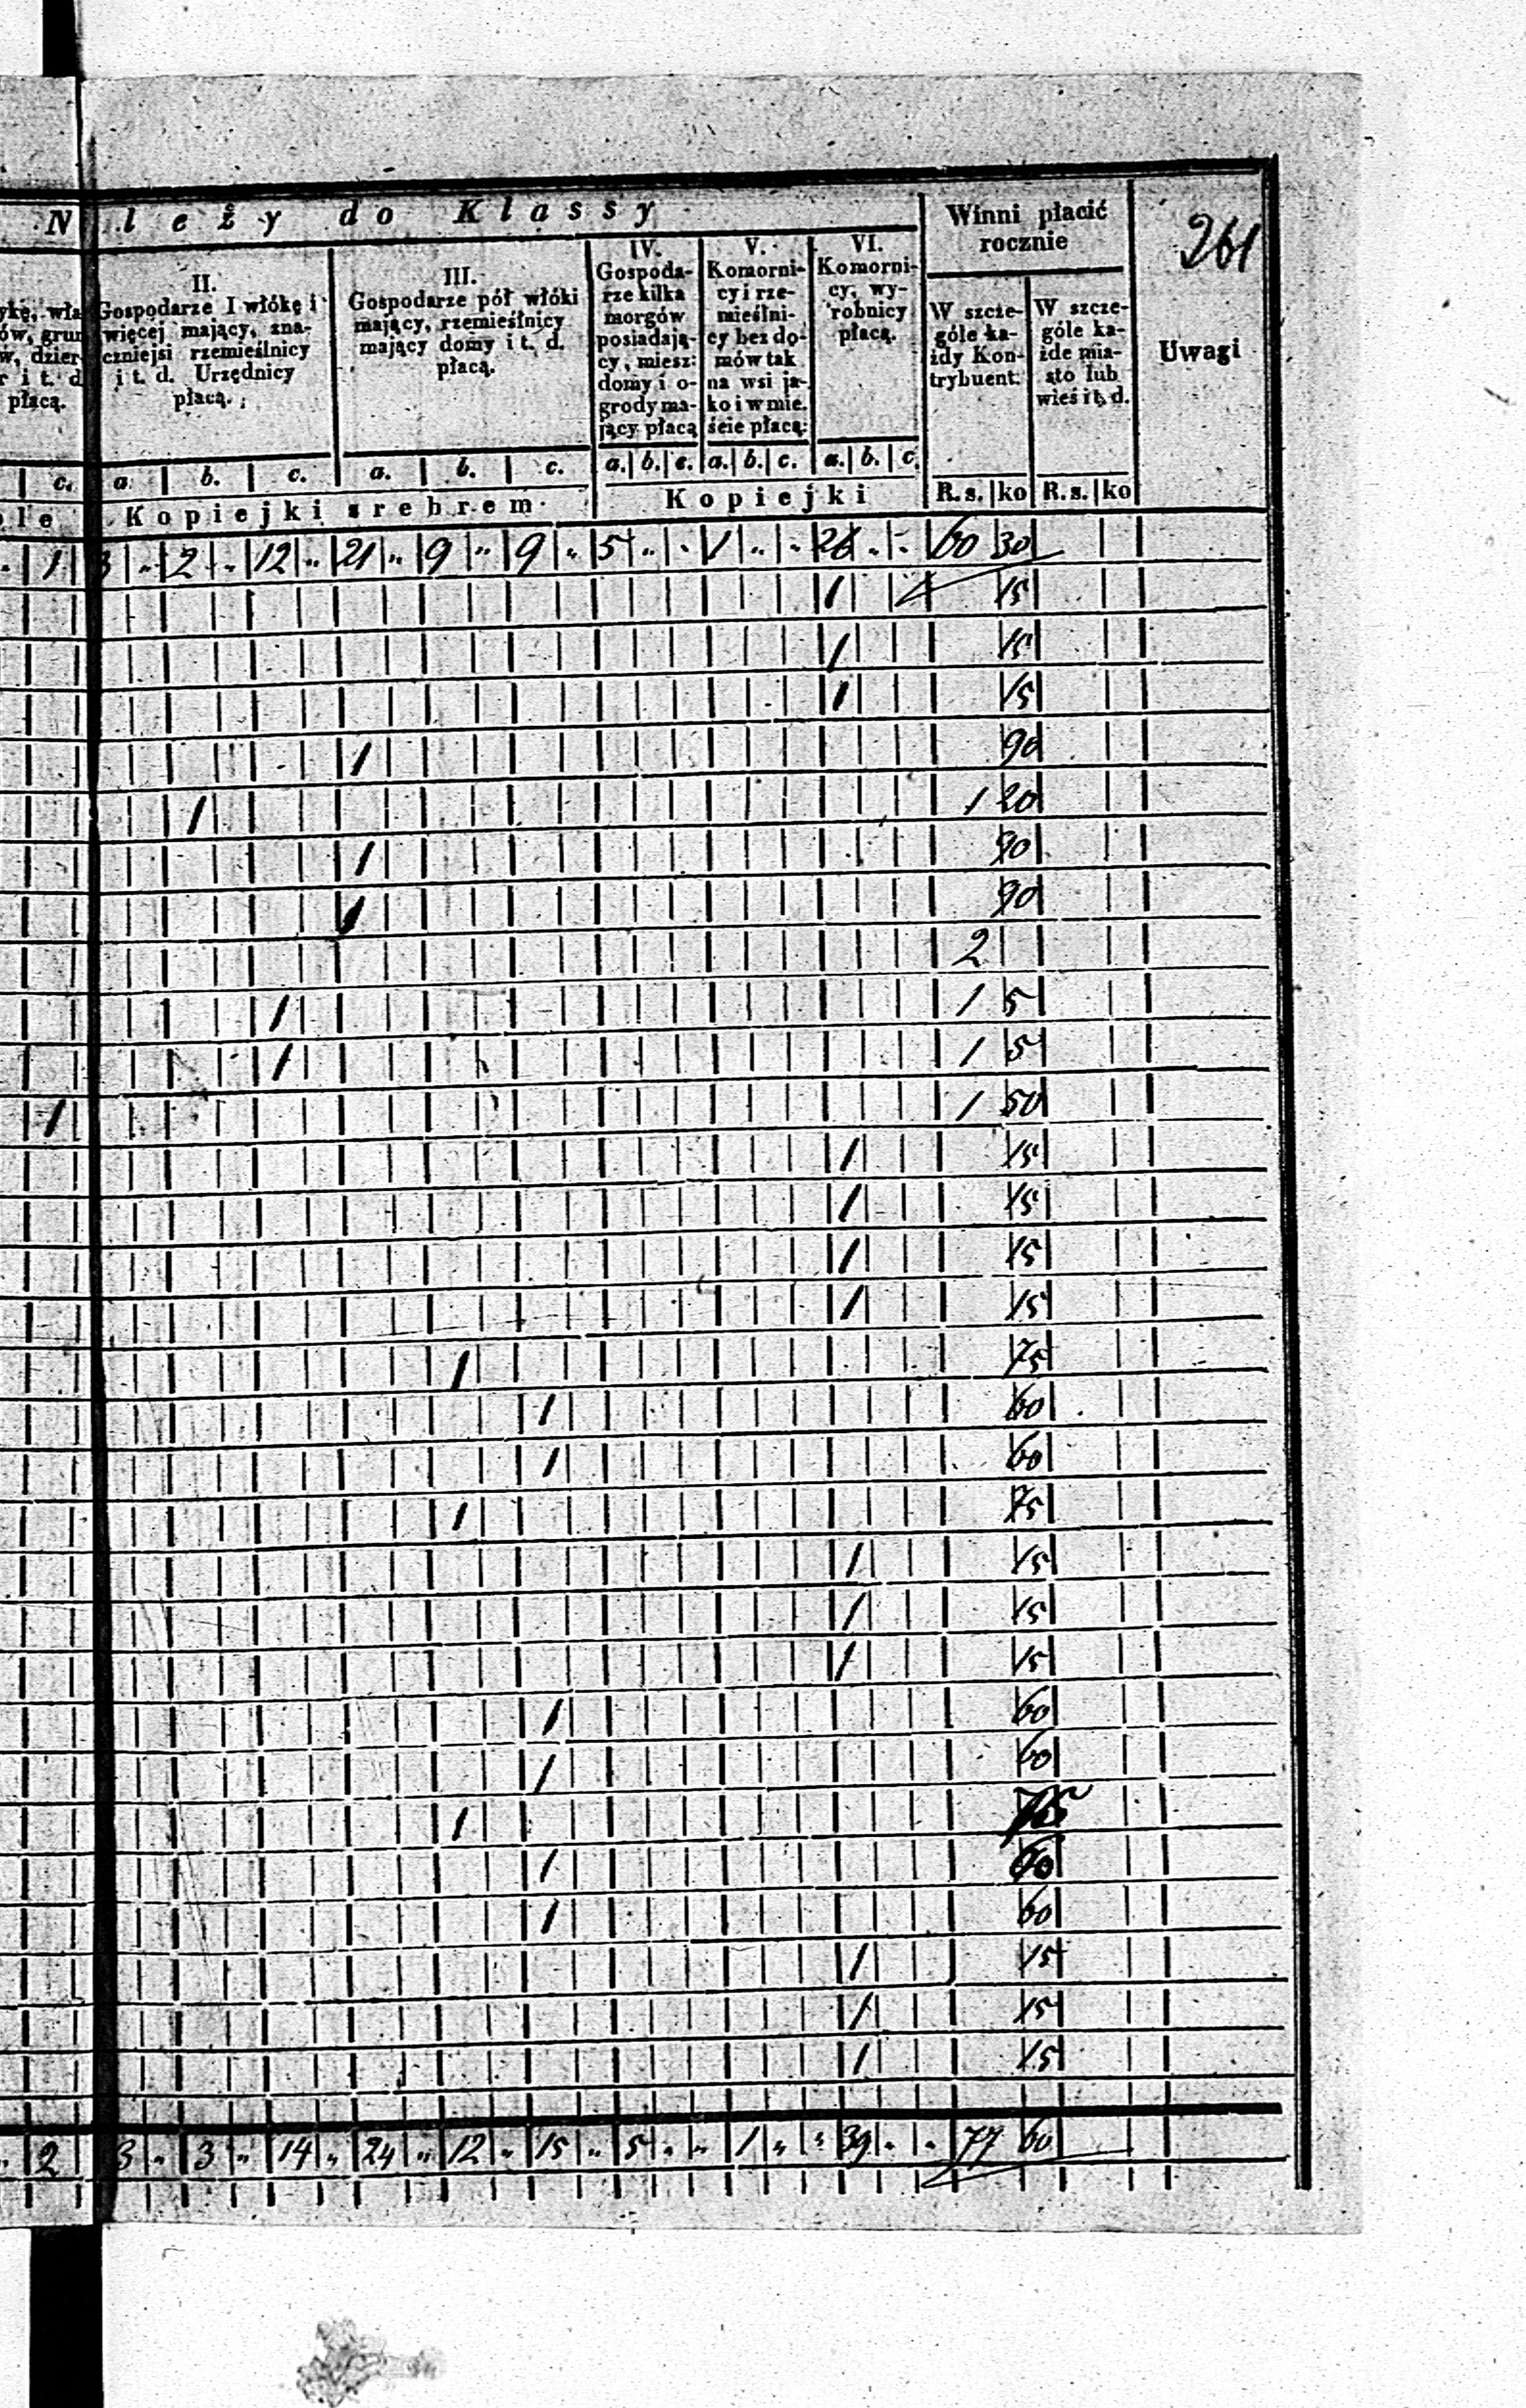 N l e ż y d o K l a s s y
Winni płacić
rocznie
261
II.
Gospodarze I włókę i
więcej mający, zna-
czniejsi rzemieślnicy
i t. d. Urzędnicy
płacą.
III.
Gospodarze pół włóki
mający, rzemieślnicy
mający domy i t. d.
płacą.
IV.
Gospoda-
rze kilka
morgów
posiadają-
cy, miesz:
domy i o-
grody ma-
jący płacą
V.
Komorni-
cy i rze-
mieślni-
cy bez do-
mów tak
na wsi ja-
ko i w mie.
ście płacą:
VI.
Komorni-
cy, wy-
robnicy
płacą.
W szcze-
góle ka-
żdy Kon-
trybuent.
W szcze-
góle ka-
żde mia-
sto lub
wieś i t. d.
Uwagi
płacą.
c. a. b. c. a. b. c. a. b. c. a. b. c. a. b. c.
R. s. ko R. s. ko
ole Kopiejki srebrem. Kopiejki
1 3 „ 2 „ 12 „ 21 „ 9 „ 9 „ 5 „ „ 1 „ „ 26 „ „ 60 30
1 15
1 15
1 15
1 90
1 1 20
1 90
1 90
2
1 1 5
1 1 5
1 1 50
1 15
1 15
1 15
1 15
1 75
1 60
1 60
1 75
1 15
1 15
1 15
1 60
1 60
1 75
1 60
1 60
1 15
1 15
1 15
„ 2 3 „ 3 „ 14 „ 24 „ 12 „ 15 „ 5 „ „ 1 „ „ 39 „ „ 77 60